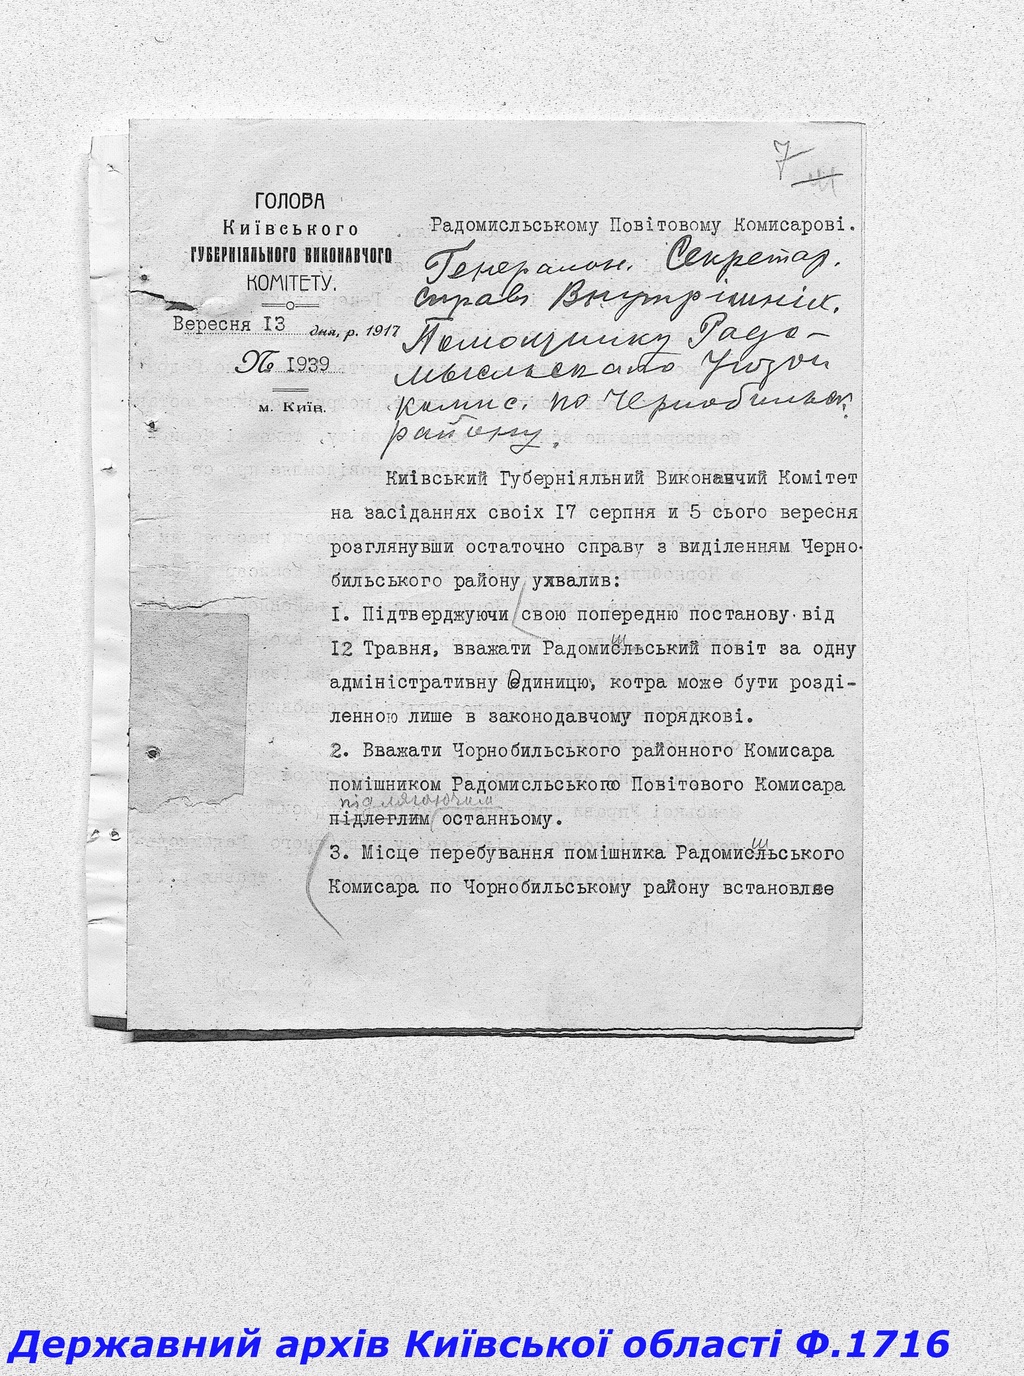 7
ГОЛОВА
Київського
ГУБЕРНІЯЛЬНОГО ВИКОНАВЧОГО
КОМІТЕТУ.
Вересня 13 дня, р. 1917
№ 1939
м. Київ.
Радомисльському Повітовому Комисарові.
Генералон. Секретар.
справ Внутрішніх.
Помощнику Радо-
мысльскаго Уѣздн
комис. по Чернобыльск.
району.
Киівський Губерніяльний Виконавчий Комітет
на засіданнях своіх 17 серпня и 5 сього вересня
розглянувши остаточно справу з виділенням Черно-
бильського району ухвалив:
1. Підтверджуючи свою попередню постанову від
12 Травня, вважати Радомисльський повіт за одну
адміністративну одиницю, котра може бути розді-
ленною лише в законодавчому порядкові.
2. Вважати Чорнобильського районного Комисара
помішником Радомисльського Повітового Комисара
підлягаючим
підлеглим останньому.
3. Місце перебування помішника Радомисльського
Комисара по Чорнобильському району встановляе
Державний архів Київської області Ф.1716